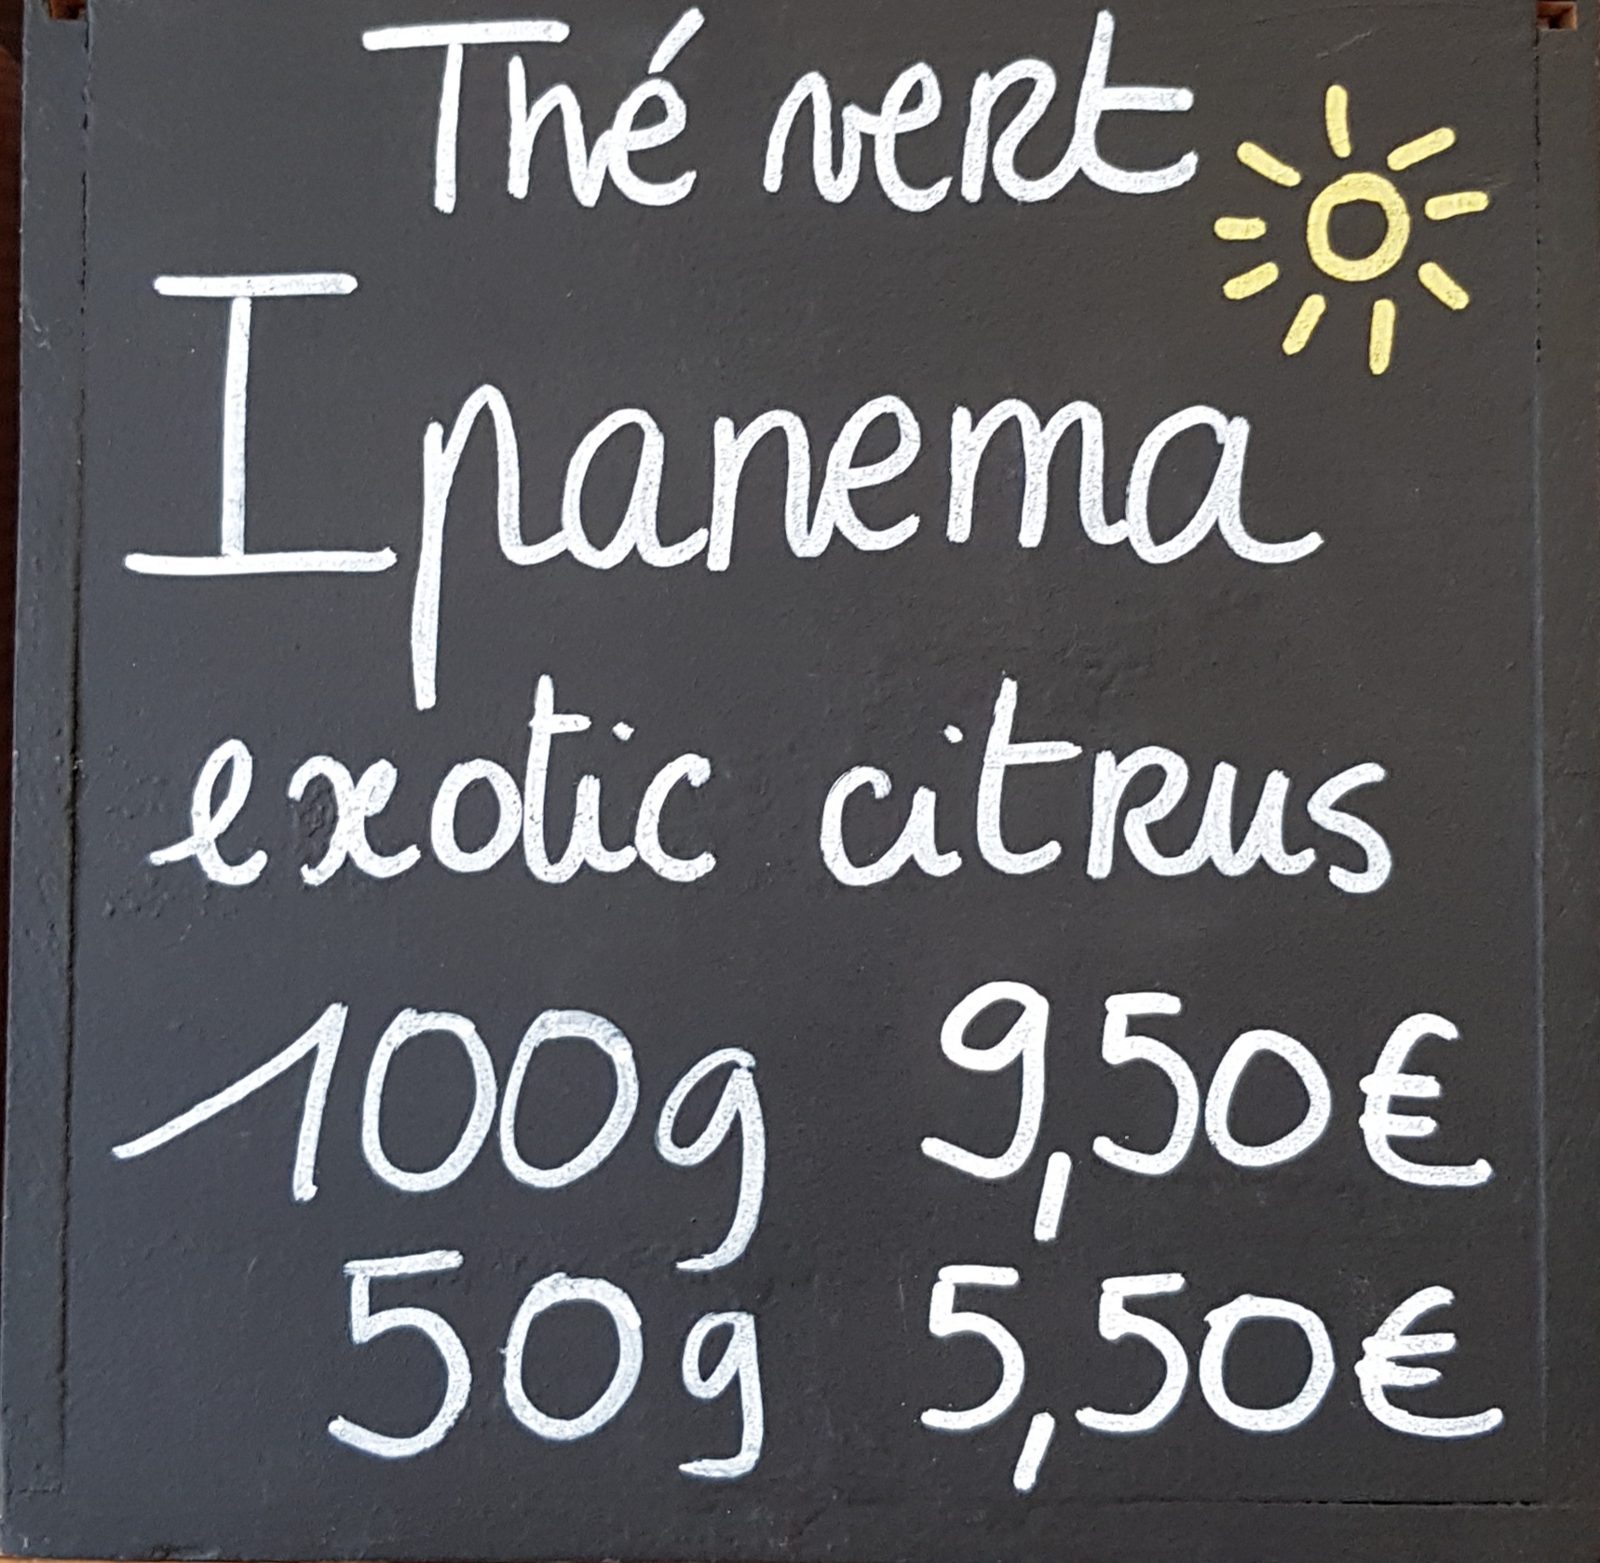 Thé vert
Ipanema
exotic citrus
100g 9,50€
50g 5,50€